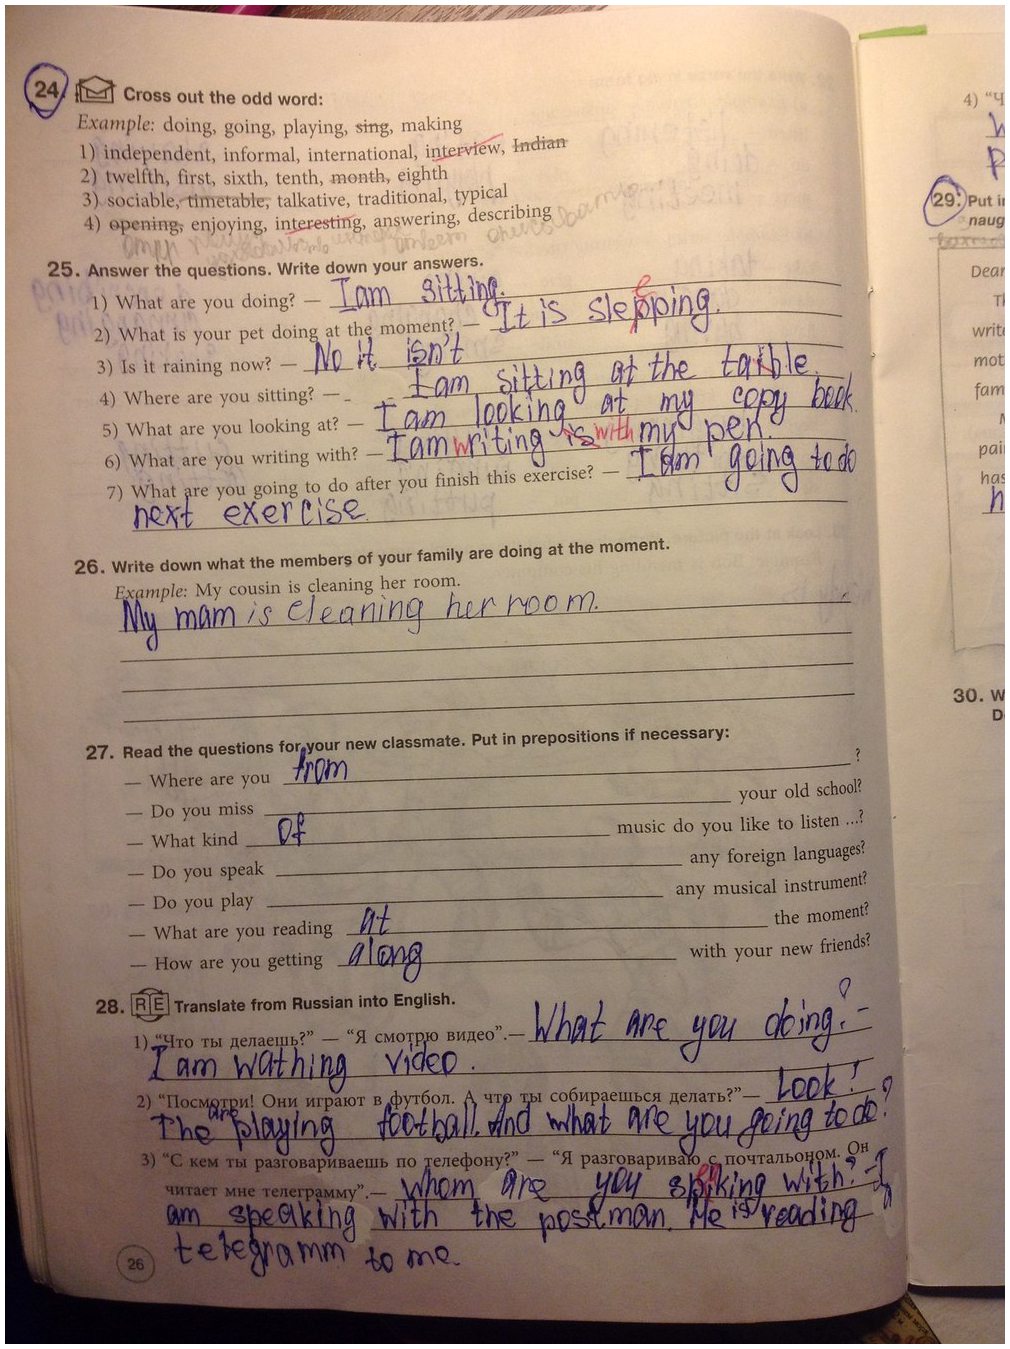 24. Cross out the odd word:
Example: doing, going, playing, sing, making
1) independent, informal, international, interview, Indian
2) twelfth, first, sixth, tenth, month, eighth
3) sociable, timetable, talkative, traditional, typical
4) opening, enjoying, interesting, answering, describing
25. Answer the questions. Write down your answers.
1) What are you doing? — I am sitting.
2) What is your pet doing at the moment? — It is sleepping.
3) Is it raining now? — No it isn't
4) Where are you sitting? — I am sitting at the table.
5) What are you looking at? — I am looking at my copy book.
6) What are you writing with? — I am writing is with my pen.
7) What are you going to do after you finish this exercise? — I am going to do
next exercise.
26. Write down what the members of your family are doing at the moment.
Example: My cousin is cleaning her room.
My mam is cleaning her room.
27. Read the questions for your new classmate. Put in prepositions if necessary:
— Where are you from ?
— Do you miss your old school?
— What kind of music do you like to listen ...?
— Do you speak any foreign languages?
— Do you play any musical instrument?
— What are you reading at the moment?
— How are you getting along with your new friends?
28. RE Translate from Russian into English.
1) “Что ты делаешь?” — “Я смотрю видео”.— What are you doing? –
I am wathing video.
2) “Посмотри! Они играют в футбол. А что ты собираешься делать?”— Look!
The are playing football. And what are you going to do?
3) “С кем ты разговариваешь по телефону?” — “Я разговариваю с почтальоном. Он
читает мне телеграмму”.— Whom are you speiking with? – I
am speaking with the postman. He is reading
telegramm to me.
26
4) “Ч
29. Put in
naug
Dear
Th
write
mot
fam
pai
has
h
30. W
D